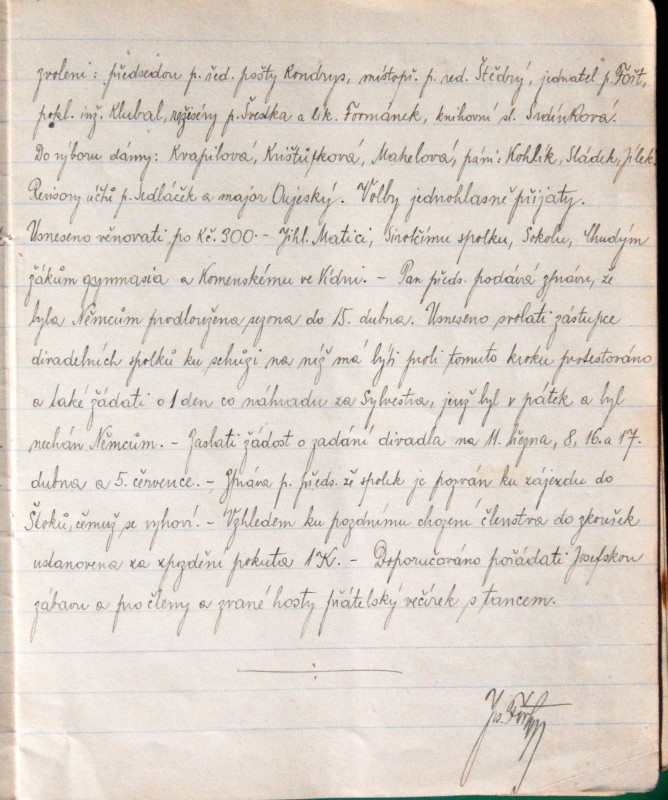 zvoleni: předsedou p. řed. pošty Kondrys, místopř. p. red. Štědrý, jednatel p. Fořt,
pokl. inž. Klubal, režiséry p. Švestka a lik. Formánek, knihovní sl. Srdínková.
Do výboru dámy: Kvapilová, Krištůfková, Mahelová, páni: Kohlík, Sládek, Jílek.
Revisory účtů p. Sedláček a major Oujeský. Volby jednohlasně přijaty.
Usneseno věnovati po Kč. 300.- Jihl. Matici, Sirotčímu spolku, Sokolu, Chudým
žákům gymnasia a Komenskému ve Vídni. - Pan předs. podává zprávu, že
byla Němcům prodloužena sezona do 15. dubna. Usneseno svolati zástupce
divadelních spolků ku schůzi na níž má býti proti tomuto kroku protestováno
a také žádati o 1 den co náhradu za Sylvestra, jenž byl v pátek a byl
nechán Němcům. - Zaslati žádost o zadání divadla na 11. března, 8, 16. a 17.
dubna a 5. července. - Zpráva p. předs. že spolek je pozván ku zájezdu do
Štoků, čemuž se vyhoví. - Vzhledem ku pozdnímu chození členstva do zkoušek
ustanovena za zpozdění pokuta 1 K. - Doporučováno pořádati Josefskou
zábavu a pro členy a zvané hosty přátelský večírek s tancem.
Jos. Fořt